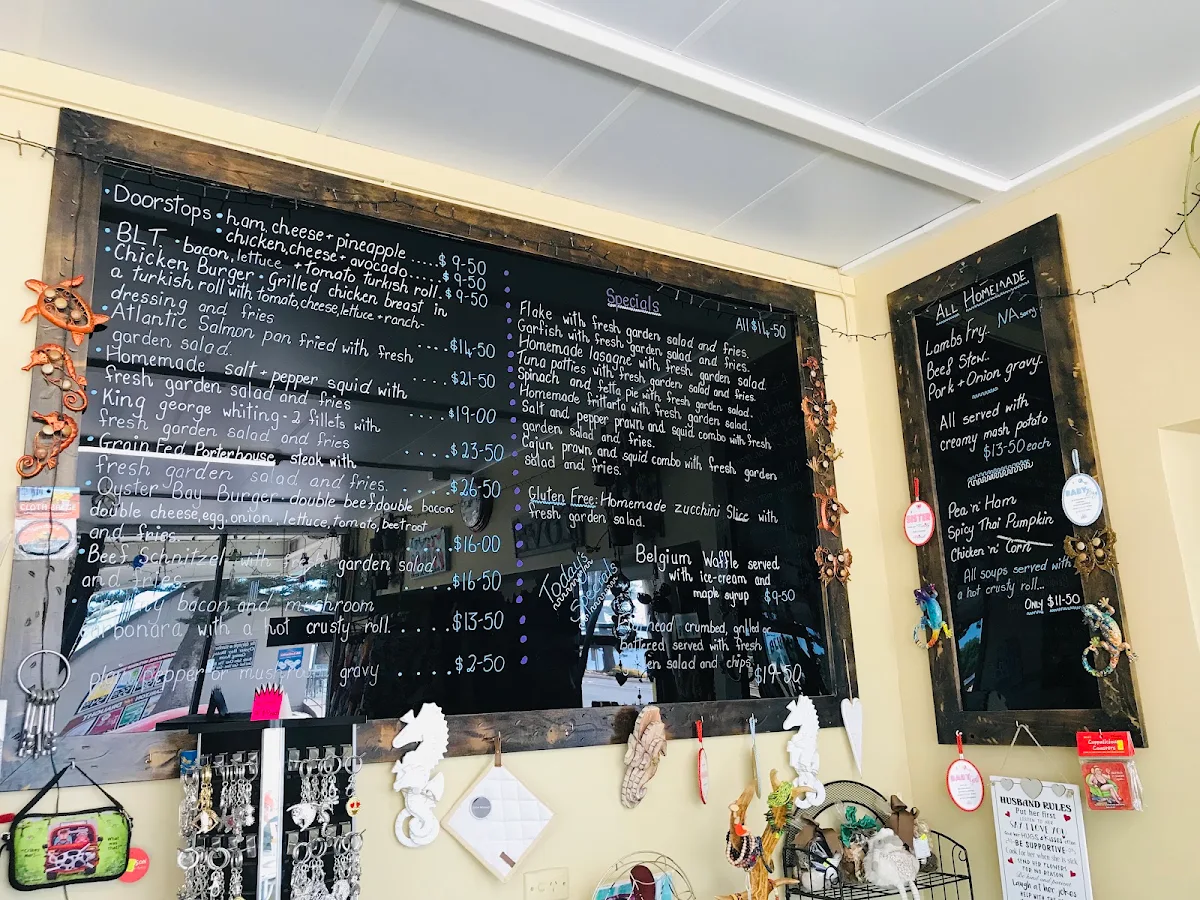 Doorstops • ham, cheese + pineapple ..... $ 9-50
chicken, cheese + avocado..... $ 9-50
• BLT. • bacon, lettuce + tomato turkish roll. $ 9-50
Chicken Burger • Grilled chicken breast in
a turkish roll with tomato, cheese, lettuce + ranch-
dressing and fries .... $14-50
• Atlantic Salmon pan fried with fresh
garden salad. .... $21-50
• Homemade salt + pepper squid with
fresh garden salad and fries .... $19-00
• King george whiting - 2 fillets with
fresh garden salad and fries .... $23-50
• Grain Fed Porterhouse steak with
fresh garden salad and fries. .... $26-50
• Oyster Bay Burger - double beef, double bacon
double cheese, egg, onion, lettuce, tomato, beetroot
and fries. $16-00
Beef Schnitzel with garden salad
and fries $16-50
bacon and mushroom
carbonara with a hot crusty roll. .... $13-50
plain, pepper or mushroom gravy .... $2-50
Specials
All $14-50
Flake with fresh garden salad and fries.
Garfish with fresh garden salad and fries.
Homemade lasagne with fresh garden salad.
Tuna patties with fresh garden salad and fries.
Spinach and fetta pie with fresh garden salad.
Homemade frittarta with fresh garden salad.
Salt and pepper prawn and squid combo with fresh
garden salad and fries.
Cajun prawn and squid combo with fresh garden
salad and fries.
Gluten Free: Homemade zucchini Slice with
fresh garden salad.
Today's
Specials
Belgium Waffle served
with ice-cream and
maple syrup $9-50
crumbed, grilled or
battered served with fresh
salad and chips $19-50
ALL HOMEMADE
Lambs Fry. NA sorry
Beef Stew.
Pork + Onion gravy.
All served with
creamy mash potato
$13-50 each
Pea 'n' Ham
Spicy Thai Pumpkin
Chicken 'n' Corn
All soups served with
a hot crusty roll...
Only $11-50
SISTER
BABY
BABY
CLOTH
HUSBAND RULES
Put her first
LISTEN TO HER
SAY I LOVE YOU
HUGS & KISSES
BE SUPPORTIVE
Care for her when she is sick
SEND HER FLOWERS
FOR NO REASON
Be kind and patient
Laugh at her jokes
HELP WITH THE